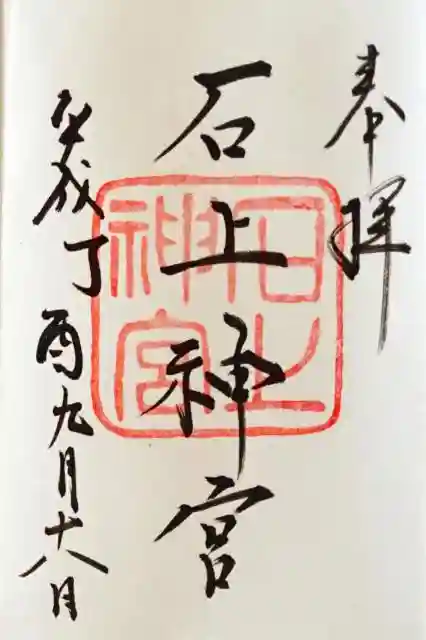 奉拝
石上神宮
石上神宮
平成丁酉九月十八日